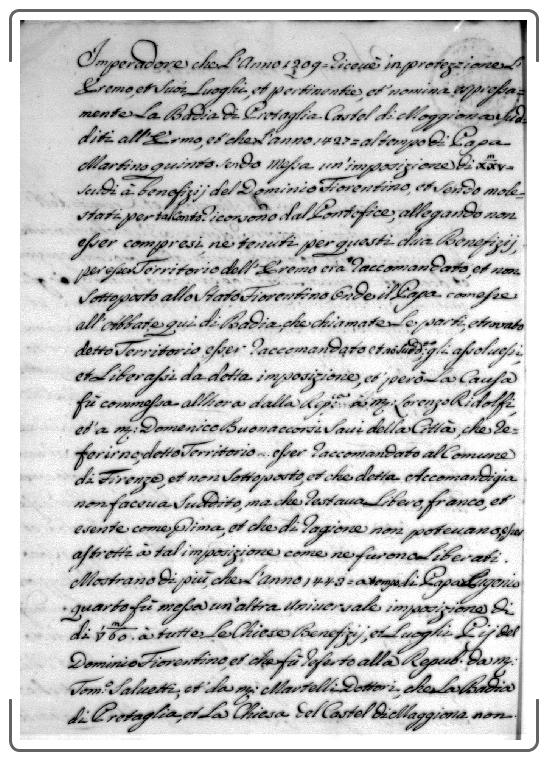 Imperadore che L'Anno 1209 = riceuè in protezzione L'
Eremo, et suoi Luoghi, et pertinentie et nomina espressa=
mente La Badia di Protaglia Castel di Moggiona sud=
diti all'Ermo, et che L'anno 1427 = al tempo di Papa
Martino quinto sendo messa un'imposizione di xxv m
scudi à benefizij del Dominio Fiorentino, et sendo mole=
stati per tal conto ricorsono dal Pontefice, allegando non
esser compresi, ne tenuti per questi dua Benefizij,
per esser Territorio dell'Eremo era raccomandato, et non
sottoposto allo stato Fiorentino Onde il Papa comesse
all'Abbate qui di Badia, che chiamate Le parti, et trovato
detto Territorio esser raccomandato et no sudd.º gli assoluessi,
et Liberassi da detta imposizione, et però La Causa
fù commessa allhora dalla Rep.ca à m: Lorenzo Ridolfi,
et à m: Domenico Buonaccorsi Savi della Città, che re=
ferirno, detto Territorio esser raccomandato al Comune
di Firenze, et non sottoposto, et che detta Accomandigia
non faceua suddito, ma che restaua Libero, franco, et
esente come prima, et che di ragione non poteuano esser
astretti à tal imposizione come ne furono Liberati
Mostrano di più, che L'anno 1443 = a tempo di Papa Eugenio
quarto fù messa un'altra Universale imposizione di
di 60 m à tutte Le Chiese Benefizij, et Luoghi Pij del
Dominio Fiorentino, et che fù referto alla Repub.ca da m:
Tom.º Saluetti, et da m: Martelli Dottori, che La Badia
di Protaglia, et La Chiesa del Castel di Maggiona non